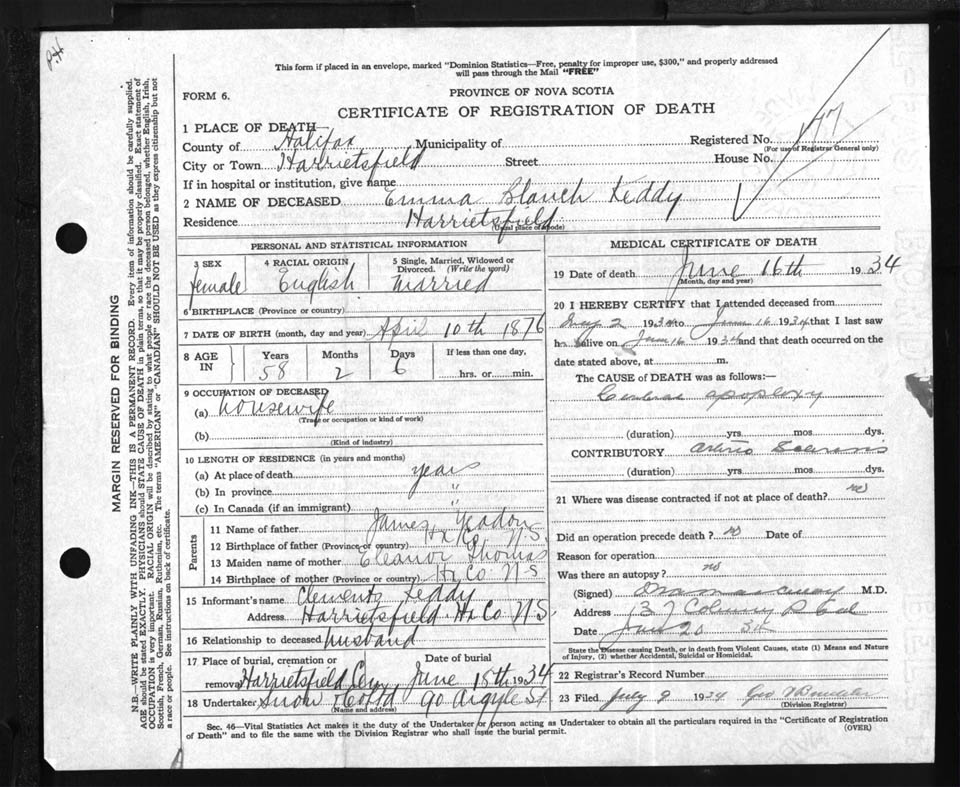 P.H.
This form if placed in an envelope, marked "Dominion Statistics—Free, penalty for improper use, $300," and properly addressed
will pass through the Mail "FREE"
PROVINCE OF NOVA SCOTIA
FORM 6.
CERTIFICATE OF REGISTRATION OF DEATH
1 PLACE OF DEATH
County of Halifax Municipality of Registered No.
(For use of Registrar General only)
City or Town Harrietsfield Street House No.
If in hospital or institution, give name
2 NAME OF DECEASED Emma Blanch Keddy
Residence Harrietsfield
(Usual place of abode)
PERSONAL AND STATISTICAL INFORMATION
3 SEX
female
4 RACIAL ORIGIN
English
5 Single, Married, Widowed or
Divorced. (Write the word)
Married
6 BIRTHPLACE (Province or country)
7 DATE OF BIRTH (month, day and year) April 10th 1876
8 AGE IN
Years Months Days If less than one day,
58 2 6 hrs. or min.
9 OCCUPATION OF DECEASED
(a) housewife
(Trade or occupation or kind of work)
(b)
(Kind of industry)
10 LENGTH OF RESIDENCE (in years and months)
(a) At place of death years
(b) In province "
(c) In Canada (if an immigrant) "
Parents
11 Name of father James Yeadon
12 Birthplace of father (Province or country) Hx Co. N.S.
13 Maiden name of mother Eleanor Thomas
14 Birthplace of mother (Province or country) Hx Co N S
15 Informant's name Clementz Keddy
Address Harrietsfield Hx Co N.S.
16 Relationship to deceased husband
17 Place of burial, cremation or Date of burial
removal Harrietsfield Cem June 18th 1934
18 Undertaker Snow & Co Ltd 90 Argyle St
(Name and address)
MEDICAL CERTIFICATE OF DEATH
19 Date of death June 16th 1934
(Month, day and year)
20 I HEREBY CERTIFY that I attended deceased from
2 1934 to June 16 1934 that I last saw
h alive on June 16 1934 and that death occurred on the
date stated above, at m.
The CAUSE of DEATH was as follows:—
Cerebral apoplexy
(duration) yrs. mos. dys.
CONTRIBUTORY arterio Sclerosis
(duration) yrs. mos. dys.
21 Where was disease contracted if not at place of death? no
Did an operation precede death? no Date of
Reason for operation
Was there an autopsy? no
(Signed) M.D.
Address 137
Date 20 34
State the Disease causing Death, or in death from Violent Causes, state (1) Means and Nature
of Injury, (2) whether Accidental, Suicidal or Homicidal.
22 Registrar's Record Number
23 Filed July 9 1934 Geo
(Division Registrar)
Sec. 46—Vital Statistics Act makes it the duty of the Undertaker or person acting as Undertaker to obtain all the particulars required in the "Certificate of Registration
of Death" and to file the same with the Division Registrar who shall issue the burial permit.
(OVER)
MARGIN RESERVED FOR BINDING
N.B.—WRITE PLAINLY WITH UNFADING INK—THIS IS A PERMANENT RECORD. Every item of information should be carefully supplied.
AGE should be stated EXACTLY. PHYSICIANS should STATE CAUSE OF DEATH in plain terms, so that it may be properly classified. Exact statement of
OCCUPATION is very important. RACIAL ORIGIN will be described by stating to what people or race the deceased person belonged, whether English, Irish,
Scottish, French, German, Russian, Ruthenian, etc. The terms "AMERICAN" or "CANADIAN" SHOULD NOT BE USED as they express citizenship but not
a race or people. See instructions on back of certificate.